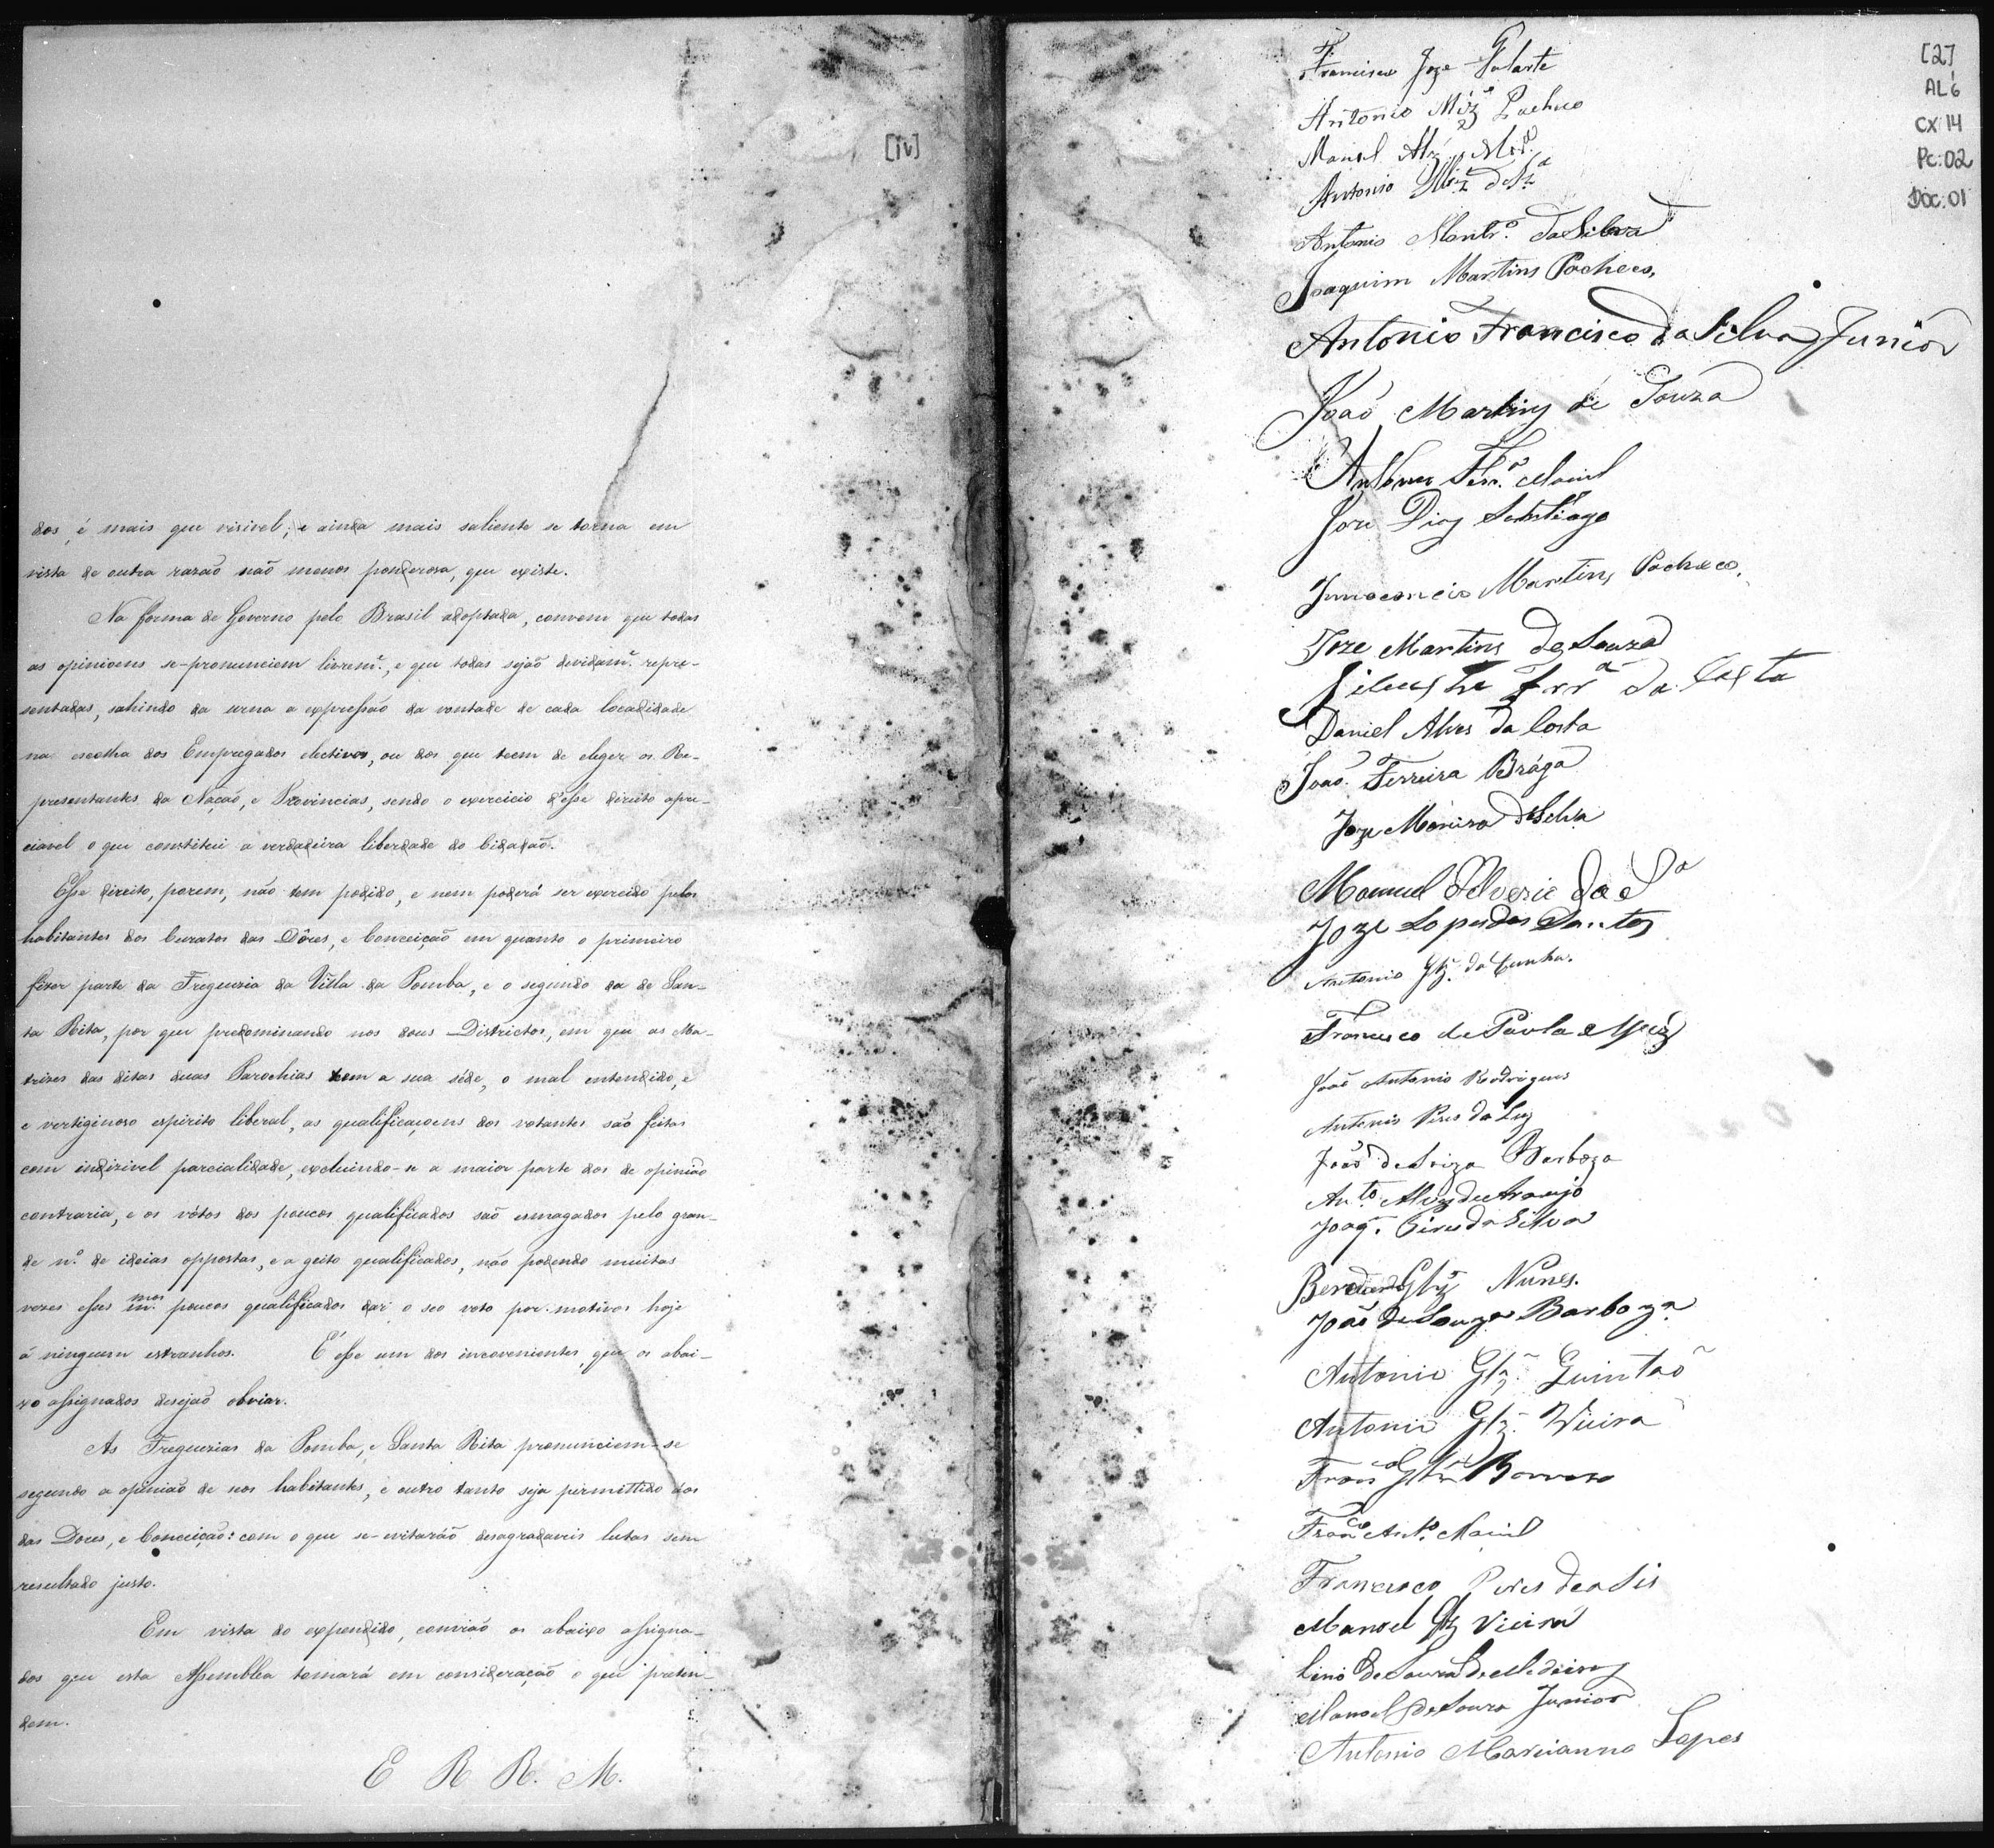 [iv]
dos, é mais que visivel; e ainda mais saliente se torna em
vista de outra rasaõ naõ menos ponderosa, que existe.
Na forma de Governo pelo Brasil adoptada, convem que todas
as opinioens se-pronunciem livrem.e, e que todas sejaõ devidam.e repre-
sentadas, sahindo da urna a expressaõ da vontade de cada localidade
na escolha dos Empregados electivos, ou dos que teem de eleger os Re-
presentantes da Naçaõ, e Provincias, sendo o exercicio d'esse direito apre-
ciavel o que constitui a verdadeira liberdade do Cidadaõ.
Esse direito, porem, não tem podido, e nem poderá ser exercido pelos
habitantes dos Curatos das Dôres, e Conceição em quanto o primeiro
fizer parte da Freguezia da Villa da Pomba, e o segundo da de San-
ta Rita, por que predominando nos dous Districtos, em que as Ma-
trizes das ditas duas Parochias tem a sua séde, o mal entendido, e
e vertiginoso espirito liberal, as qualificaçoens dos votantes saõ feitas
com indizivel parcialidade, excluindo-se a maior parte dos de opiniaõ
contraria, e os vótos dos poucos qualificados saõ esmagados pelo gran-
de n.o de ideias oppostas, e a geito qualificados, não podendo muitas
vezes esses m.mos poucos qualificados dar o seo voto por motivos hoje
á ninguem estranhos. E' esse um dos incovenientes, que os abai-
xo assignados desejaõ obviar.
As Freguezias da Pomba, e Santa Rita pronunciem-se
segundo a opiniaõ de seos habitantes, e outro tanto seja permittido aos
das Dores, e Conceição: com o que se-evitaráõ desagradaveis lutas sem
resultado justo.
Em vista do expendido, confiaõ os abaixo assigna-
dos que esta Assemblea tomará em consideraçaõ o que preten-
dem.
E R R. M.
[2]
AL6
CX 14
Pc:02
DOC:01
Francisco Joze Golarte
Antonio Miz Pacheco
Manoel Alz
Antonio
Antonio Montr.o da Silva
Joaquim Martins Pacheco,
Antonio Francisco da Silva Junior
Joaõ Martins de Souza
Antonio Ferr.a Maciel
Joze Dias Santiago
Innocencio Martins Pacheco.
Joze Martins de Souza
Silvestre Ferr.a da Costa
Daniel Alves da Costa
Joaõ Ferreira Brága
Joze Moreira da Silva
Manuel Silverio da S.a
Joze Lopes dos Santos
Antonio Glz. da Cunha.
Francisco de Paula
João Antonio Rodrigues
Antonio Pires da Luz
João de Soiza Barboza
An.to Alvz de Araujo
Joaq.m Pires da Silva
Glz Nunes.
João de Souza Barboza
Antonio Glz. Quintaõ
Antonio Glz. Vieira
Fran.co Glz Barroso
Fran.co Ant.o Maciel
Francisco Pires de asis
Manoel Glz Vieira
Lino de Souza de Medeiros
Manoel de Souza Junior
Antonio Marianno Lopes